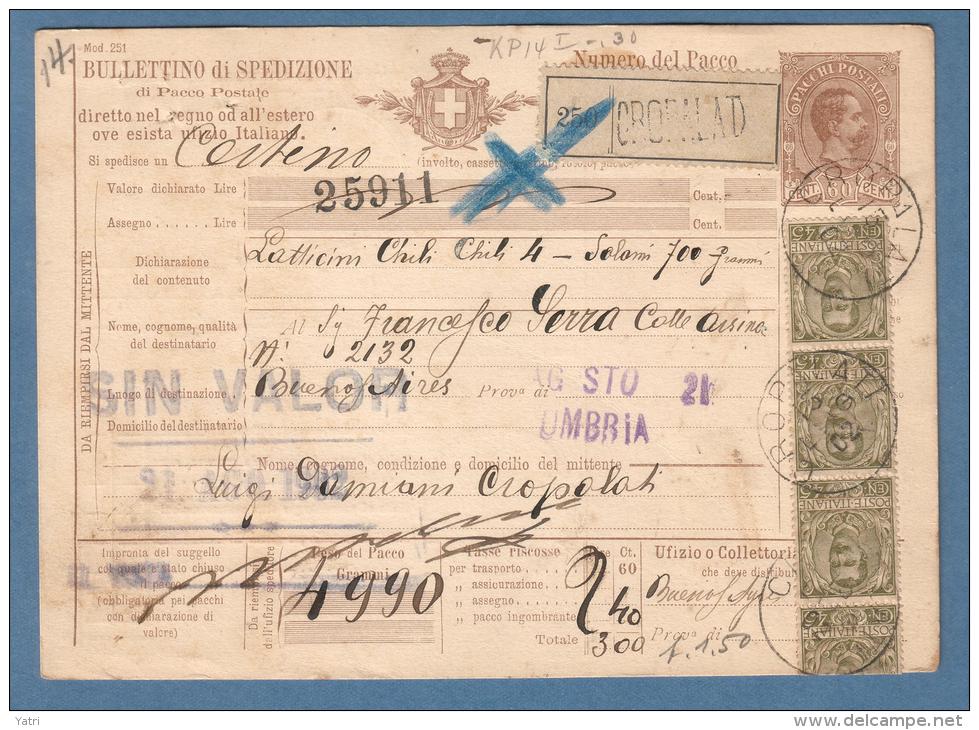 KP14 I -. 30
14
Mod. 251
BULLETTINO di SPEDIZIONE
di Pacco Postale
diretto nel regno od all'estero
ove esista ufizio Italiano.
Numero del Pacco
250 CROPALATI
PACCHI POSTALI
CENT. 60 CENT.
Si spedisce un Cestino (involto, cassetta,
Valore dichiarato Lire 25911 Cent.
Assegno . . . . . Lire Cent.
Dichiarazione
del contenuto
Latticini Chili Chili 4 – Salami 700 grammi
Nome, cognome, qualità
del destinatario
Al Sig Francesco Serra Calle
N° 2132
Luogo di destinazione Buenos Aires Prov.a di
AGOSTO 21
UMBRIA
SIN VALOR
Domicilio del destinatario
DA RIEMPIRSI DAL MITTENTE
Nome, cognome, condizione e domicilio del mittente
Luigi Damiani Cropalati
Impronta del suggello
col quale è stato chiuso
il pacco
(obbligatoria pei pacchi
con dichiarazione di
valore)
Da riempirsi
dall'ufizio speditore
Peso del Pacco
Grammi
4990
Tasse riscosse Lire Ct.
per trasporto . 60
„ assicurazione.
„ assegno . 2 40
„ pacco ingombrante
Totale 300
Ufizio o Collettoria
che deve distribu
Buenos Ayres
Prov.a di
f. 1.50
POSTE ITALIANE
CENT. 45
POSTE ITALIANE
CENT. 45
POSTE ITALIANE
CENT. 45
POSTE ITALIANE
CENT. 45
Yatri
delcampe.net